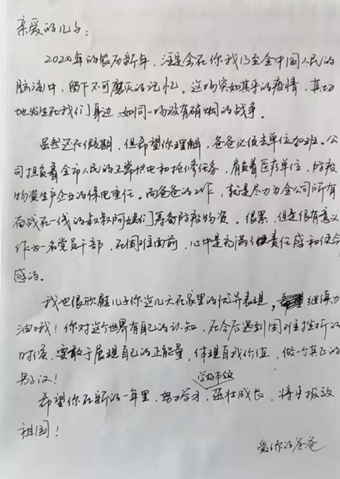 亲爱的儿子：
2020年的农历新年，注定会在你我乃至全中国人民的
脑海中，留下不可磨灭的记忆。这场突如其来的疫情，真切
地发生在我们身边，如同一场没有硝烟的战争。
虽然还在假期，但希望你理解，爸爸必须去单位加班。公
司担负着全市人民的正常供电和抢修任务，肩负着医疗单位、防疫
物资生产企业的保电重任。而爸爸的工作，就是尽力为全公司所有
奋战在一线的叔叔阿姨们筹备防疫物资。很累，但是很有意义
作为一名党员干部，在困难面前，心中是充满了责任感和使命
感的。
我也很欣慰儿子你这几天在家里的优异表现，继续加
油哦！你对这个世界有自己的认知，在今后遇到困难挫折的
时候，要敢于展现自己的正能量，体现自我价值，做一个真正的
男子汉！
希望你在新的一年里，努力学习，学好本领，茁壮成长，将来报效
祖国！
爱你的爸爸